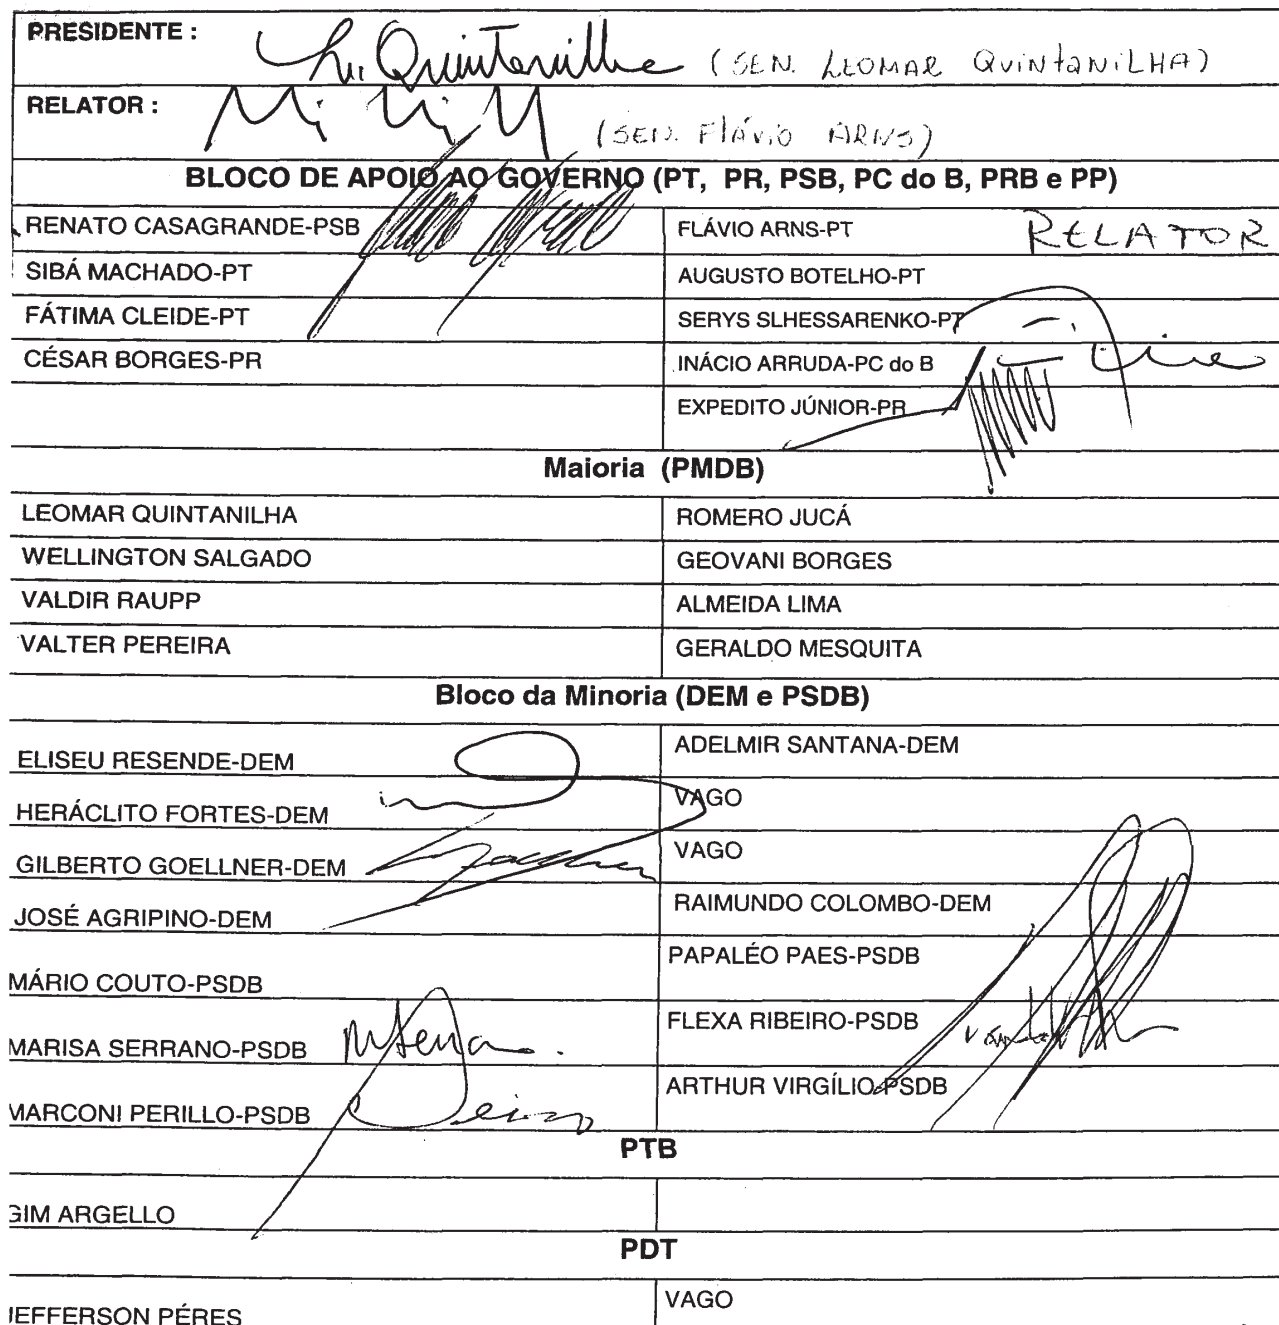 PRESIDENTE : L. Quintanilha (SEN. LEOMAR QUINTANILHA)
RELATOR : (SEN. FLÁVIO ARNS)
BLOCO DE APOIO AO GOVERNO (PT, PR, PSB, PC do B, PRB e PP)
RENATO CASAGRANDE-PSB FLÁVIO ARNS-PT RELATOR
SIBÁ MACHADO-PT AUGUSTO BOTELHO-PT
FÁTIMA CLEIDE-PT SERYS SLHESSARENKO-PT
CÉSAR BORGES-PR INÁCIO ARRUDA-PC do B
EXPEDITO JÚNIOR-PR
Maioria (PMDB)
LEOMAR QUINTANILHA ROMERO JUCÁ
WELLINGTON SALGADO GEOVANI BORGES
VALDIR RAUPP ALMEIDA LIMA
VALTER PEREIRA GERALDO MESQUITA
Bloco da Minoria (DEM e PSDB)
ELISEU RESENDE-DEM ADELMIR SANTANA-DEM
HERÁCLITO FORTES-DEM VAGO
GILBERTO GOELLNER-DEM VAGO
JOSÉ AGRIPINO-DEM RAIMUNDO COLOMBO-DEM
MÁRIO COUTO-PSDB PAPALÉO PAES-PSDB
MARISA SERRANO-PSDB FLEXA RIBEIRO-PSDB
MARCONI PERILLO-PSDB ARTHUR VIRGÍLIO-PSDB
PTB
GIM ARGELLO
PDT
JEFFERSON PÉRES VAGO